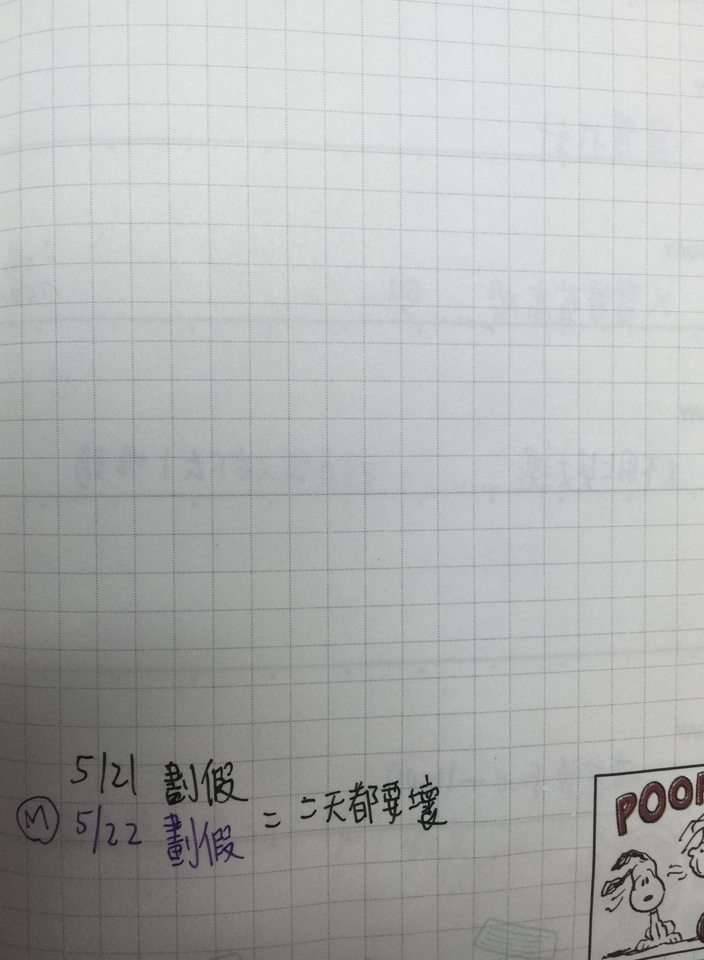 5/21 劃假
Ⓜ 5/22 劃假 = 二天都要壞
POOP